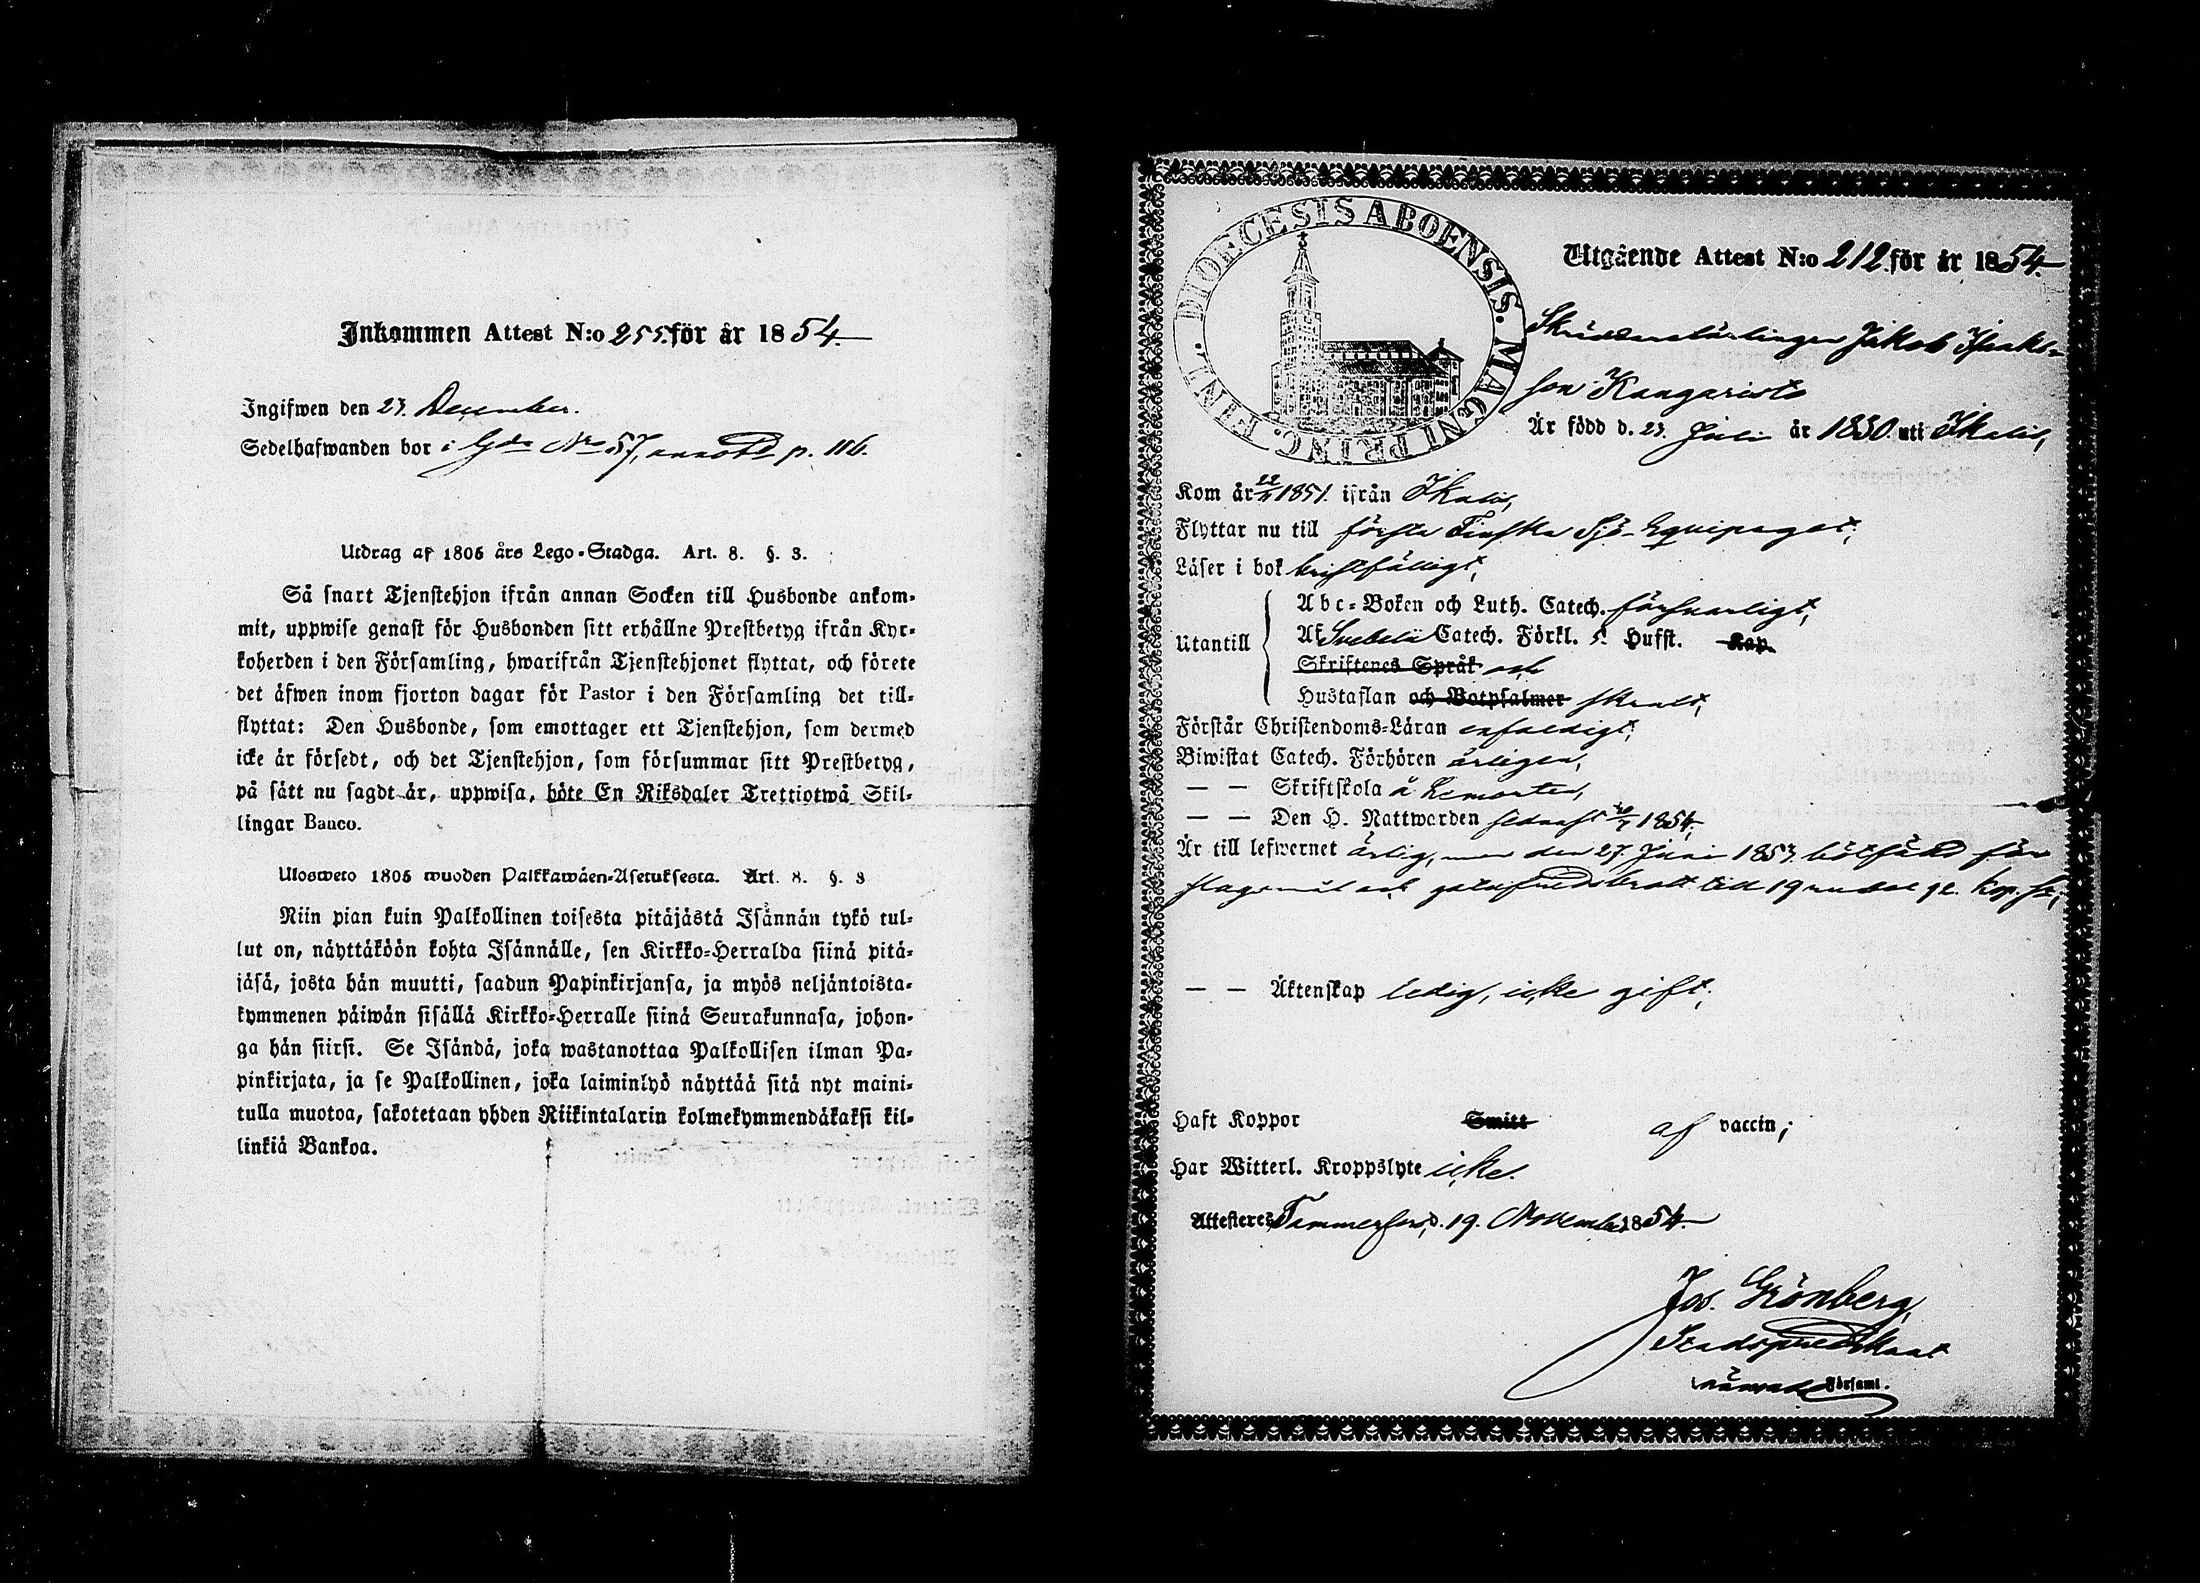 Inkommen Attest N:o 255. för år 1854.
Ingifwen den 23. December.
Sedelhafwanden bor i Gdn No 57, p. 116.
Utdrag af 1805 års Lego-Stadga. Art. 8. §. 3.
Så snart Tjenstehjon ifrån annan Socken till Husbonde ankom-
mit, uppwise genast för Husbonden sitt erhållne Prestbetyg ifrån Kyr-
koherden i den Församling, hwarifrån Tjenstehjonet flyttat, och förete
det äfwen inom fjorton dagar för Pastor i den Församling det till-
flyttat: Den Husbonde, som emottager ett Tjenstehjon, som dermed
icke är försedt, och det Tjenstehjon, som försummar sitt Prestbetyg,
på sätt nu sagdt är, uppwisa, böte En Riksdaler Trettiotwå Skil-
lingar Banco.
Ulosweto 1805 wuoden Palkkawäen-Asetuksesta. Art. 8. §. 3
Niin pian kuin Palkollinen toisesta pitäjästä Isännän tykö tul-
lut on, näyttäköön kohta Isännälle, sen Kirkko-Herralda siinä pitä-
jäsä, josta hän muutti, saadun Papinkirjansa, ja myös neljäntoista-
kymmenen päiwän sisällä Kirkko-Herralle siinä Seurakunnasa, johon-
ga hän siirsi. Se Isändä, joka wastanottaa Palkollisen ilman Pa-
pinkirjata, ja se Palkollinen, joka laiminlyö näyttää sitä nyt maini-
tulla muotoa, sakotetaan yhden Riikintalarin kolmekymmendäkaksi kil-
linkiä Bankoa.
DIOECESIS ABOENSIS. MAGNI PRINC. FINL.
Utgående Attest N:o 212. för år 1854.
Skräddarelärlingen Jakob Isaks-
son Kangaristo
Är född d. 23. Juli år 1830. uti Ikalis,
Kom år 1851. ifrån Ikalis,
Flyttar nu till första Finska Sjö-Equipaget;
Läser i bok bristfälligt,
Utantill
Abc-Boken och Luth. Catech. försvarligt,
Af Svebelii Catech. Förkl. 5. Hufst. Kap.
Skriftenes Språk och
Hustaflan och Botpsalmer skralt,
Förstår Christendoms-Läran enfaldigt,
Biwistat Catech. Förhören årligen,
— — Skriftskola å
— — Den H. Nattwarden sednast 1854;
Är till lefwernet ärlig, men den 27. Juni 1853 bötfäld för
slagsmål och gatufridsbrott till 19 rubel 92. kop. s:r;
— — Äktenskap ledig, icke gift;
Haft Koppor Smitt af vaccin;
Har Witterl. Kroppslyte icke.
Attesteres Tammerfors, d. 19. November 1854.
Jos. Grönberg,
Stadspredikant
Församl.